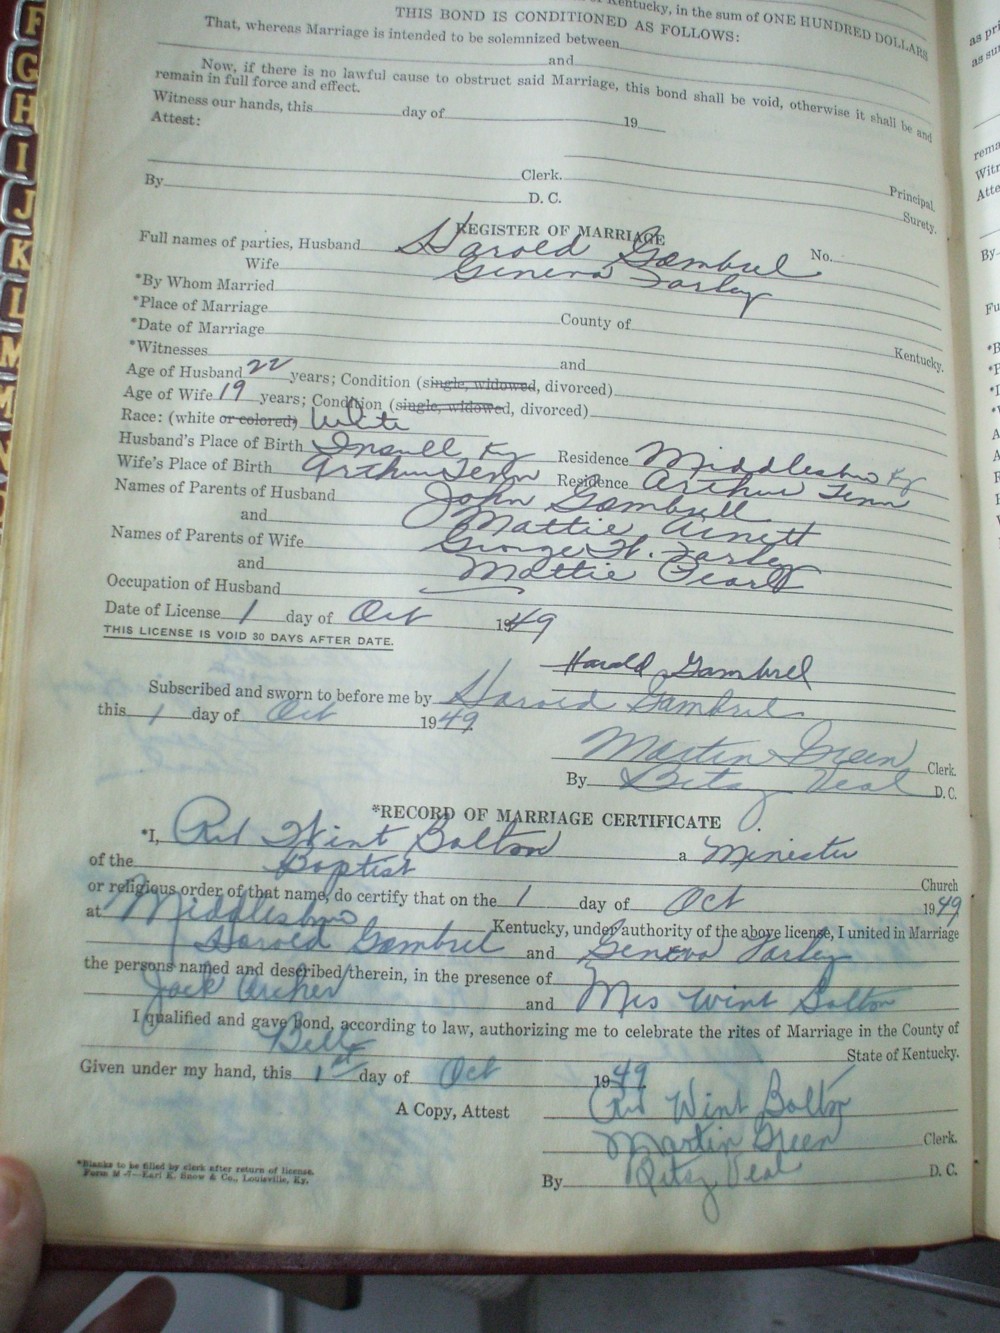 Kentucky, in the sum of ONE HUNDRED DOLLARS
THIS BOND IS CONDITIONED AS FOLLOWS:
That, whereas Marriage is intended to be solemnized between
and
Now, if there is no lawful cause to obstruct said Marriage, this bond shall be void, otherwise it shall be and
remain in full force and effect.
Witness our hands, this day of 19
Attest:
Clerk. Principal.
By D. C. Surety.
REGISTER OF MARRIAGE
Full names of parties, Husband Harold Gambrel No.
Wife Geneva Farley
*By Whom Married
*Place of Marriage County of Kentucky.
*Date of Marriage
*Witnesses and
Age of Husband 22 years; Condition (single, widowed, divorced)
Age of Wife 19 years; Condition (single, widowed, divorced)
Race: (white or colored) White
Husband's Place of Birth Insull Ky Residence Middlesboro Ky
Wife's Place of Birth Arthur Tenn Residence Arthur Tenn
Names of Parents of Husband John Gambrell
and Mattie Arnett
Names of Parents of Wife George W. Farley
and Mattie Pearl
Occupation of Husband
Date of License 1 day of Oct 1949
THIS LICENSE IS VOID 30 DAYS AFTER DATE.
Harold Gambrel
Subscribed and sworn to before me by Harold Gambrel
this 1 day of Oct 1949
Martin Green Clerk.
By Veal D. C.
*RECORD OF MARRIAGE CERTIFICATE
*I, Wint Bolton a Minister
of the Baptist Church
or religious order of that name, do certify that on the 1 day of Oct 1949
at Middlesboro Kentucky, under authority of the above license, I united in Marriage
Harold Gambrel and Geneva Farley
the persons named and described therein, in the presence of
Jack Archer and Mrs Wint Bolton
I qualified and gave bond, according to law, authorizing me to celebrate the rites of Marriage in the County of
Bell State of Kentucky.
Given under my hand, this 1st day of Oct 1949
Wint Bolton
A Copy, Attest
Martin Green Clerk.
By Veal D. C.
*Blanks to be filled by clerk after return of license.
Earl K. Snow & Co., Louisville, Ky.
F
G
H
I
J
K
L
M